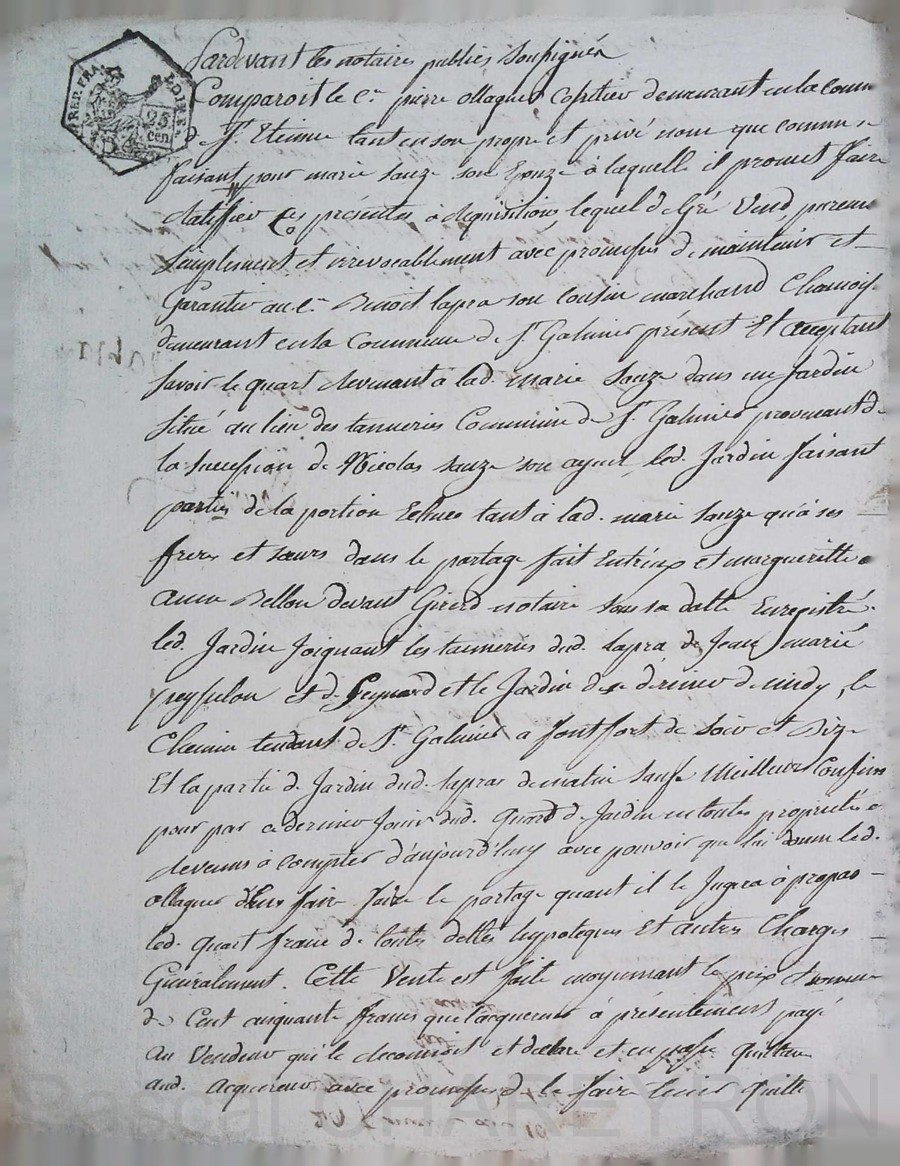 Pardevant les notaires publics soussignés
Comparoit le c.en pierre ollagnier Cofretier demeurant en la comm
de S.t Etienne tant en son propre et privé nom que comme se
faisant pour marie sauze son Epouze à laquelle il promet faire
Ratiffier ces présentes à Requisitions, lequel de Gré Vend purem
simplement et irrevocablement avec promesses de maintenir et
Garantir au c.en Benoit lapra son cousin marchand Chamois
demeurant en la Commune de S.t Galmier présent Et acceptant
Savoir le quart Revenant à lad. marie Sauze dans un Jardin
situé au lieu des tanneries Commune de S.t Galmier provenant de
la succession de Nicolas sauze son ayeul, led. Jardin faisant
partie de la portion Echue tant à lad. marie Sauze qu'à ses
freres et soeurs dans le partage fait Entr'eux et margueritte
anne Bellon devant Girerd notaire sous sa datte Enregistré.
led. Jardin Joignant les tanneries dud. lapra de Jean marie
peyssselon et de Peynard et le Jardin de ce dernier de midy, le
Chemin tendant de S.t Galmier a fontfort de soir et Bize
Et la partie de Jardin dud. lapras de matin saufs Meilleurs Confins
pour par ce dernier Jouir dud. quart de Jardin en toutes propriétés
Revenus à compter d'aujourd'huy avec pouvoir que lui donne led.
ollagnier d'en faire faire le partage quant il le Jugera à propos
led. quart franc de toutes dettes hypoteques Et autres Charges
Généralement. Cette Vente est faite moyennant le prix et somme
de Cent cinquante francs que l'acquereur à présentement payé
au Vendeur qui le Reconnoit et declare et en passe quittance
aud. acquereur avec promesse de le faire tenir quitte
TIMBRE REP. FRA.
LOIRE
25
cen
Pascal CHAREYRON